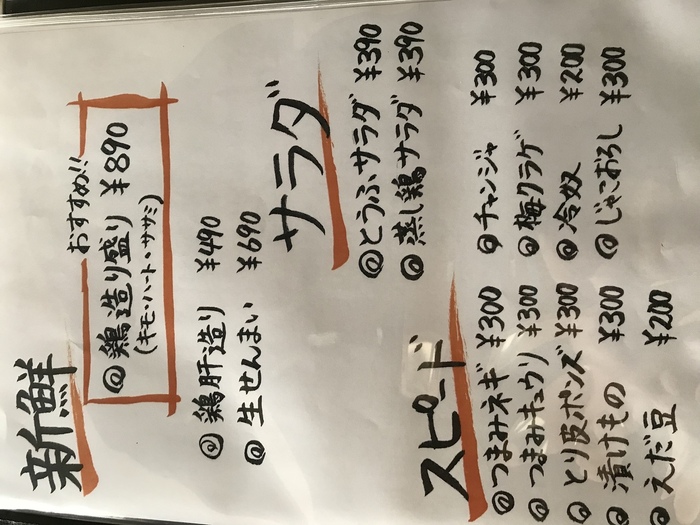 新鮮
おすすめ!!
◎鶏造り盛り ¥890
(キモ・ハート・ササミ)
◎鶏肝造り ¥490
◎生せんまい ¥690
サラダ
◎とうふサラダ ¥390
◎蒸し鶏サラダ ¥390
スピード
◎つまみネギ ¥300
◎つまみキュウリ ¥300
◎とり皮ポンズ ¥300
◎漬けもの ¥300
◎えだ豆 ¥200
◎チャンジャ ¥300
◎梅クラゲ ¥300
◎冷奴 ¥200
◎じゃこおろし ¥300